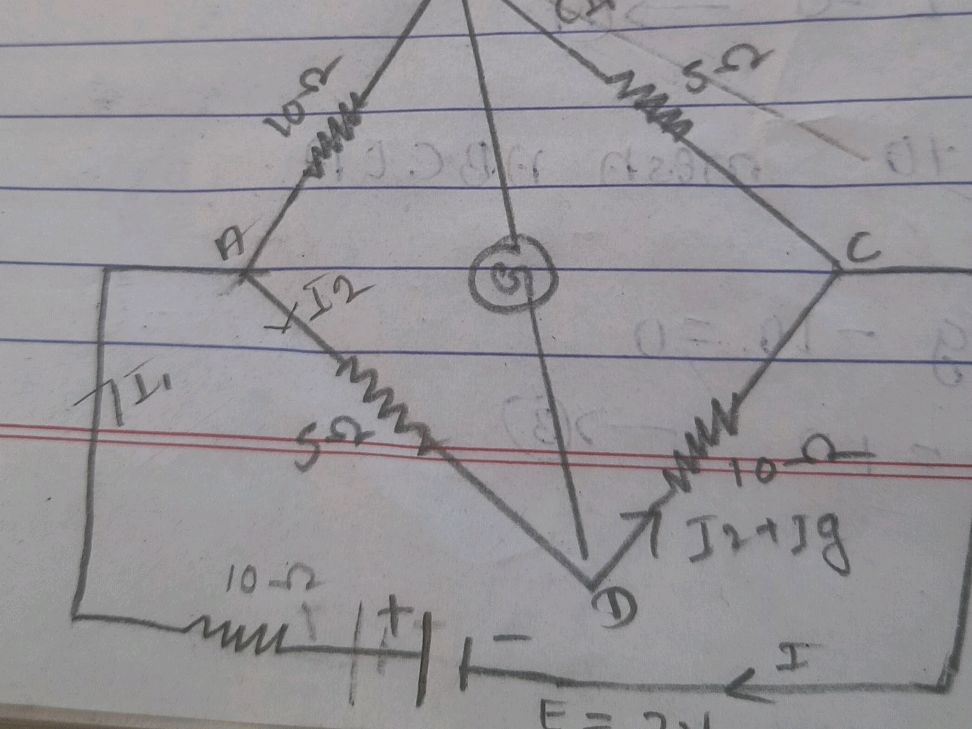 10Ω
5Ω
A
C
G
I2
I1
5Ω
10Ω
I2+Ig
D
10Ω
+
-
I
E =